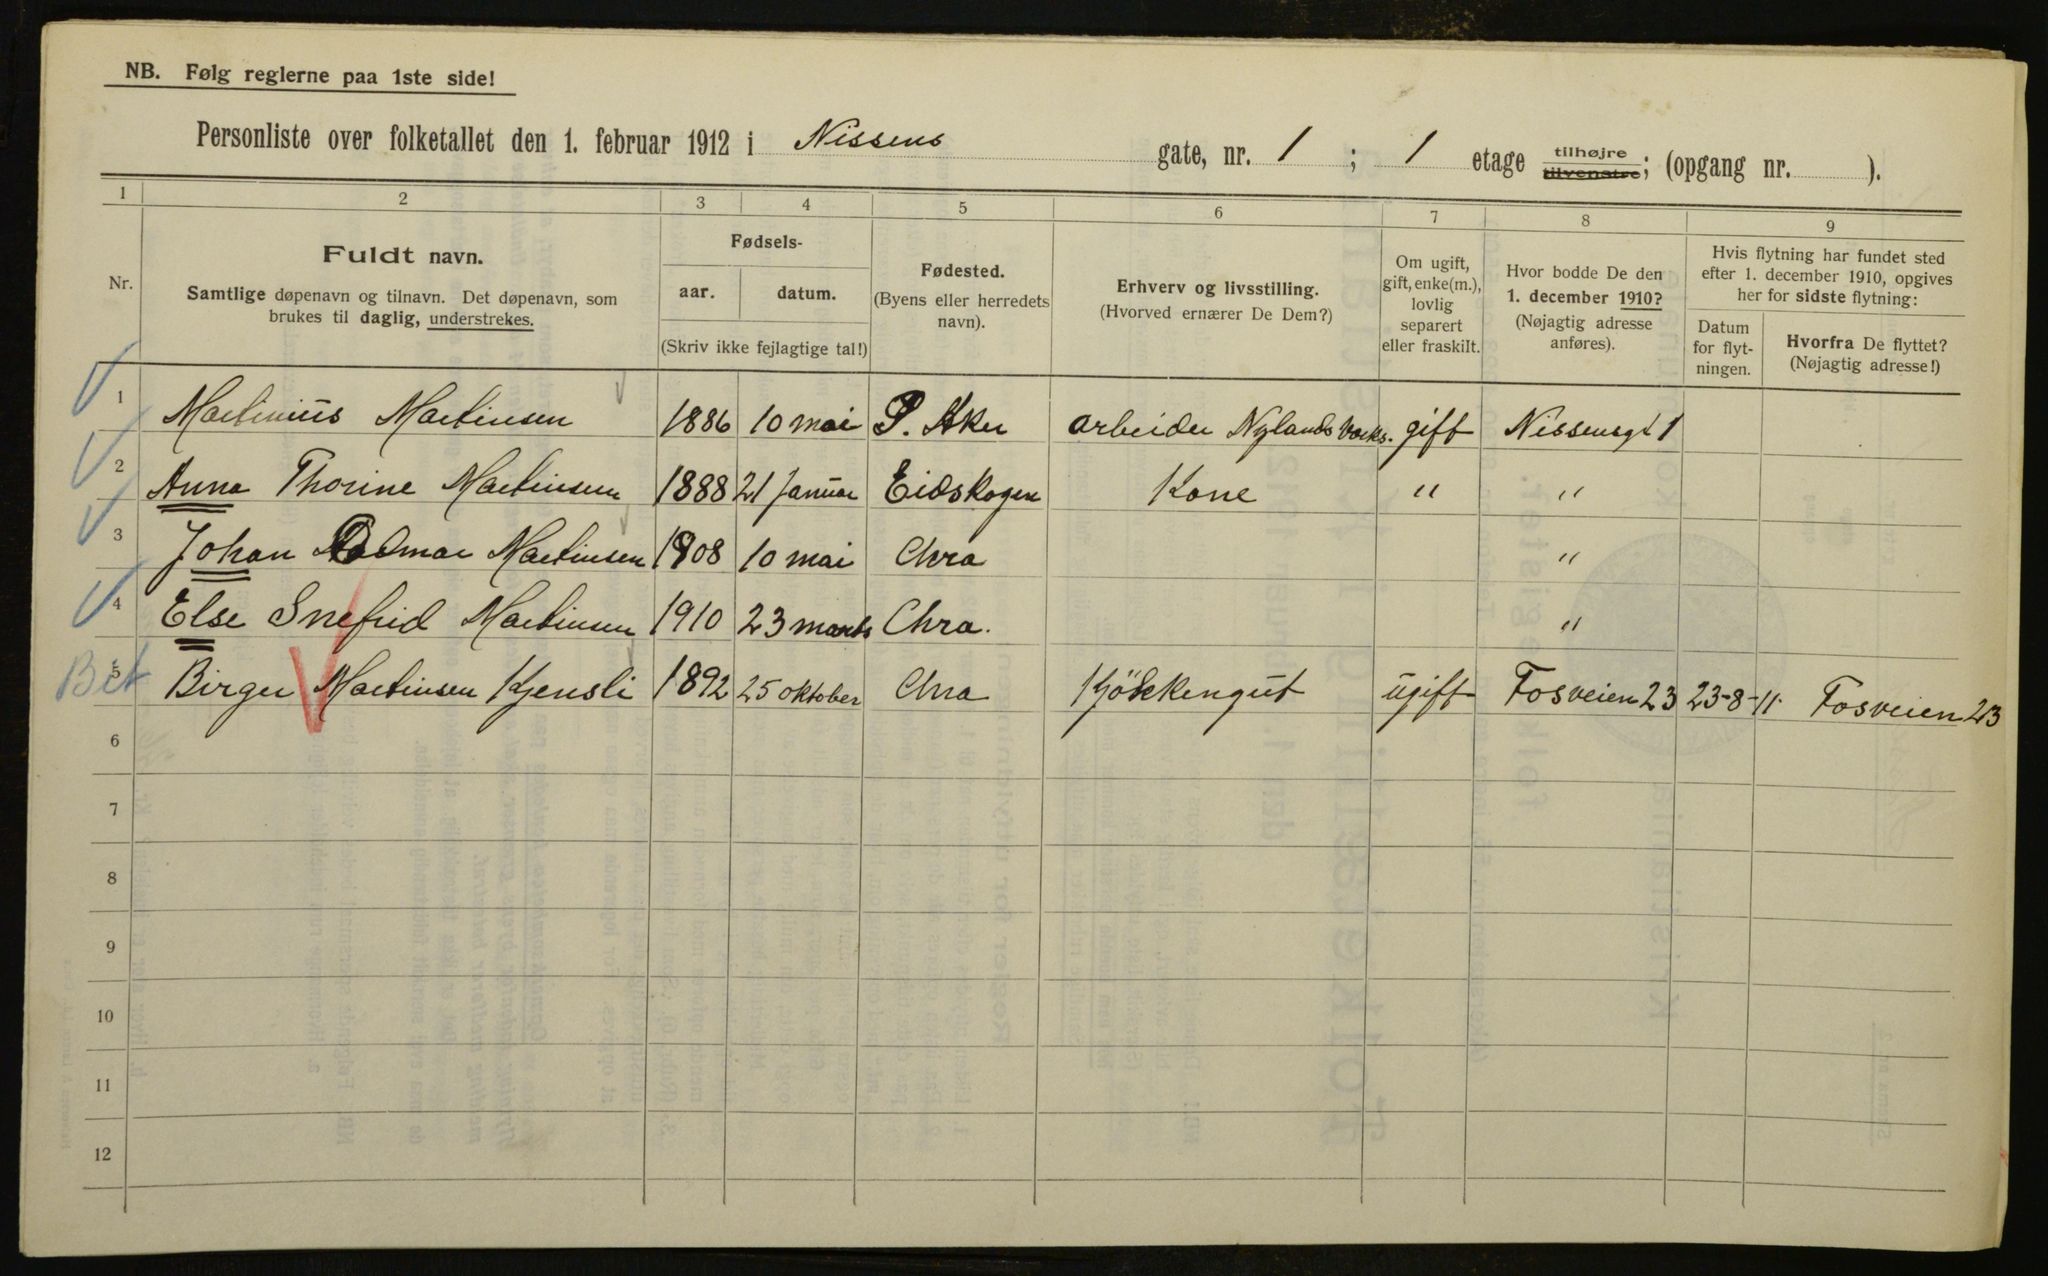 NB. Følg reglerne paa 1ste side!
Personliste over folketallet den 1. februar 1912 i Nissens gate, nr. 1 ; 1 etage tilhøjre tilvenstre; (opgang nr. ).
1 2 3 4 5 6 7 8 9
Nr.
Fuldt navn.
Samtlige døpenavn og tilnavn. Det døpenavn, som
brukes til daglig, understrekes.
Fødsels-
aar. datum.
(Skriv ikke fejlagtige tal!)
Fødested.
(Byens eller herredets
navn).
Erhverv og livsstilling.
(Hvorved ernærer De Dem?)
Om ugift,
gift, enke(m.),
lovlig
separert
eller fraskilt.
Hvor bodde De den
1. december 1910?
(Nøjagtig adresse
anføres).
Hvis flytning har fundet sted
efter 1. december 1910, opgives
her for sidste flytning:
Datum
for flyt-
ningen.
Hvorfra De flyttet?
(Nøjagtig adresse!)
1 Martinius Martinsen 1886 10 mai Ø. Aker arbeider Nylands Værks. gift Nissensgt 1
2 Anna Thorine Martinsen 1888 21 Januar Eidskogen Kone " "
3 Johan Martinsen 1908 10 mai Chra "
4 Else Snefrid Martinsen 1910 23 marts Chra. "
5 Birger Martinsen Kjensli 1892 25 oktober Chra Kjökkengut ugift Fosveien 23 23-8-11. Fosveien 23
6
7
8
9
10
11
12